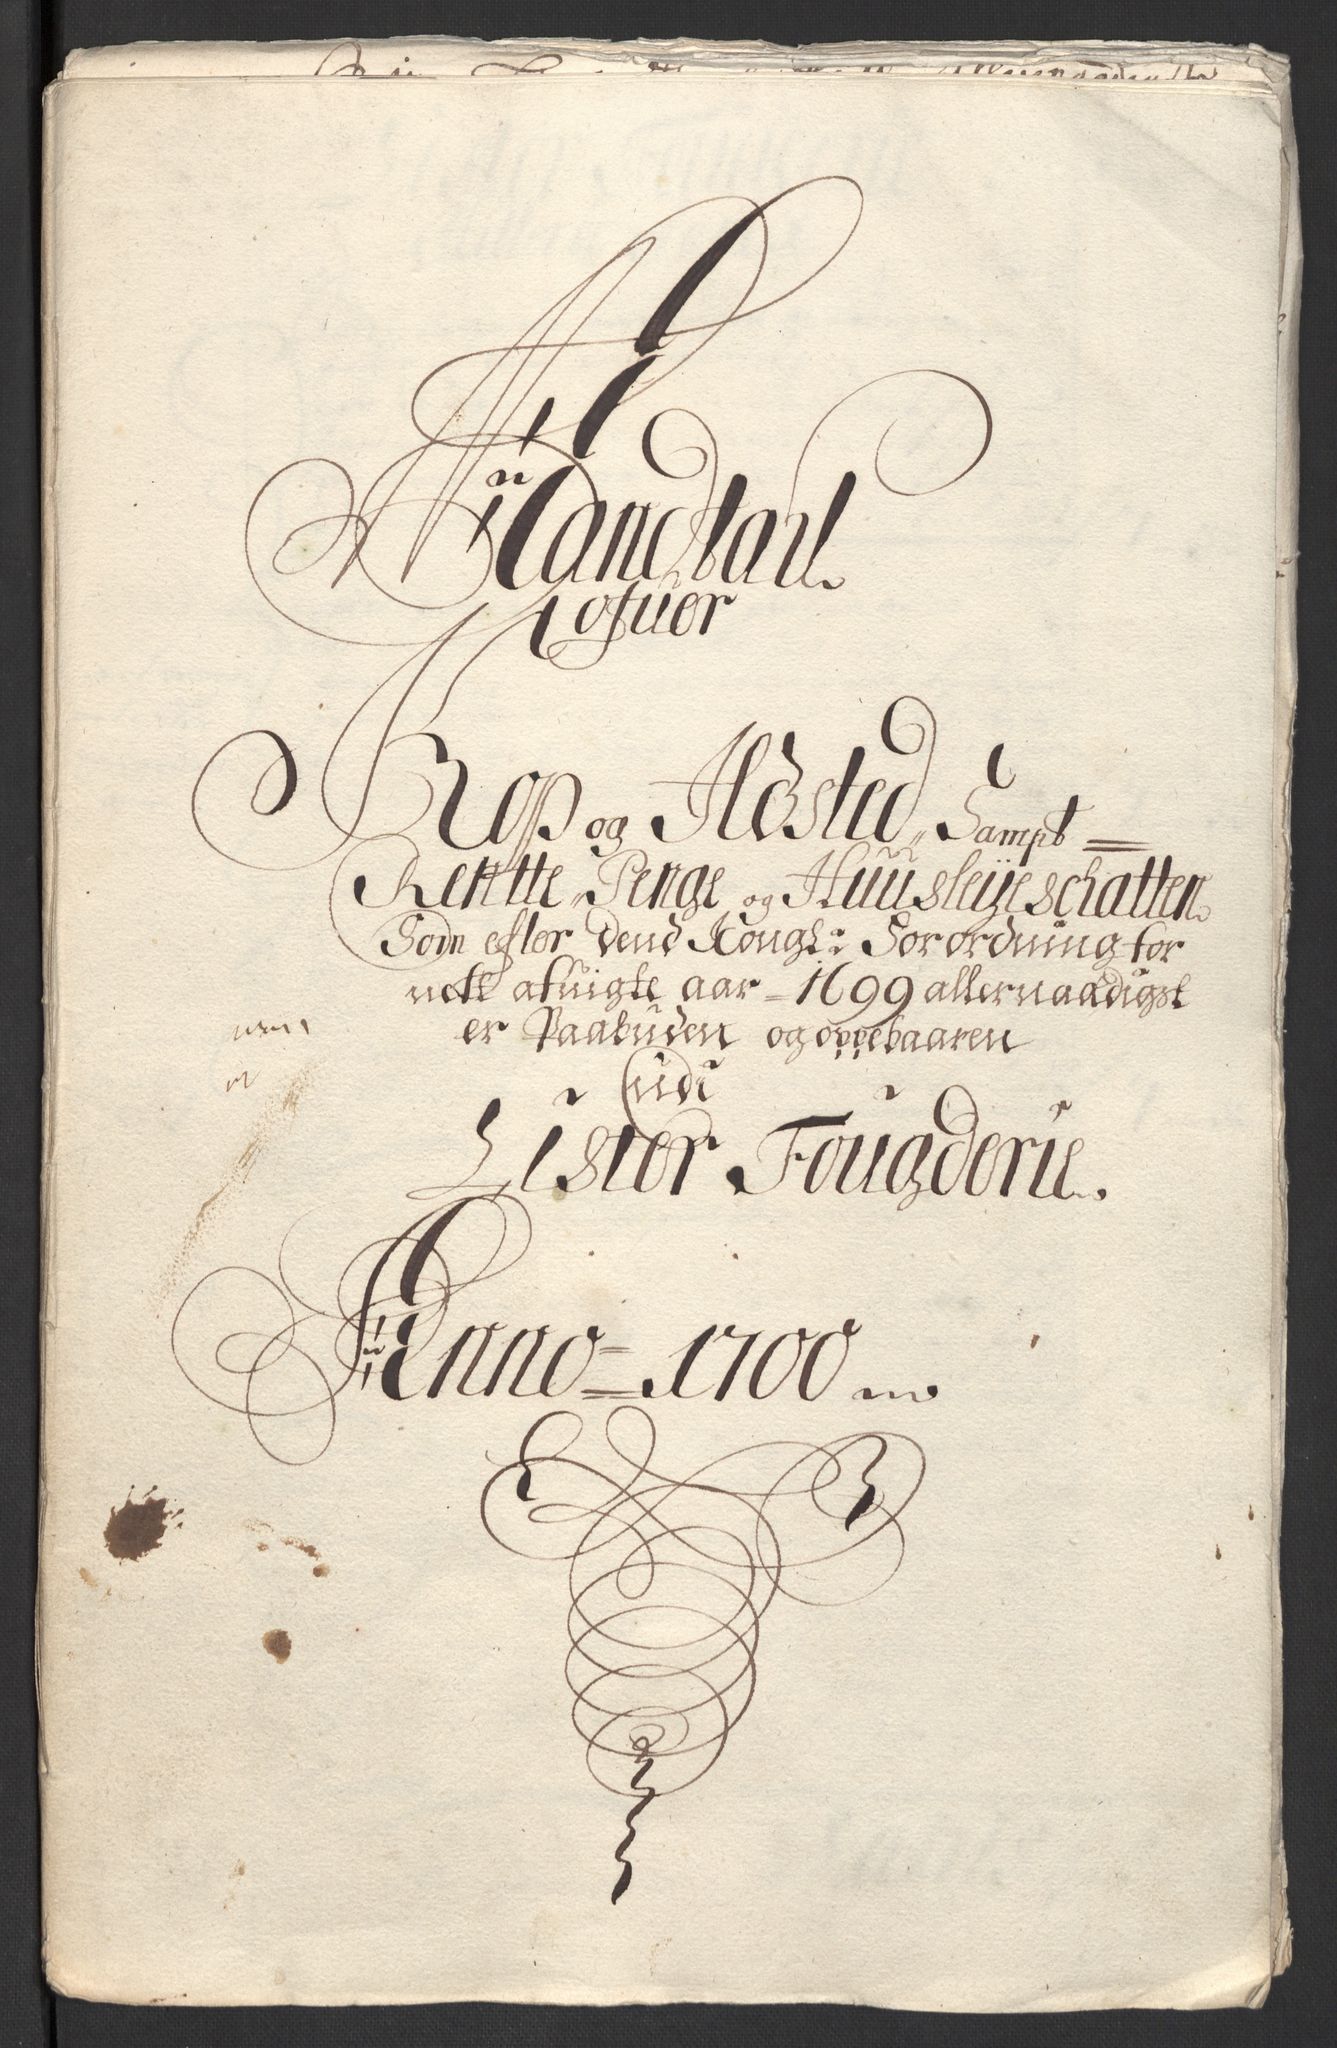 Mandtall
ofuer
Kop og Ildsted, Sampt
Rentte-Penge og Huusleÿeschatten
Som efter dend Kongl: Forordning for
nest afuigte aar = 1699 allernaadigst
er Paabuden og oppebaaren
udi
Lister Fougderie.
Anno = 1700